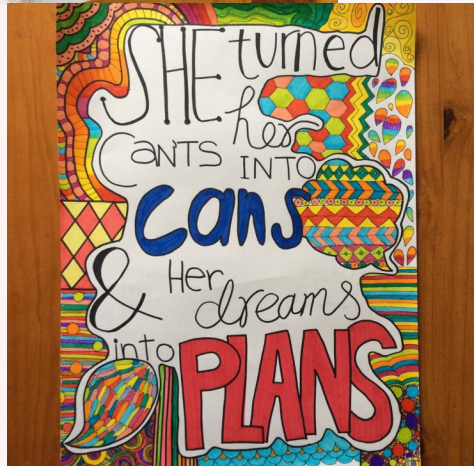 SHE turned
her
CaNTS INTO
cans
& Her
dreams
into
PLANS